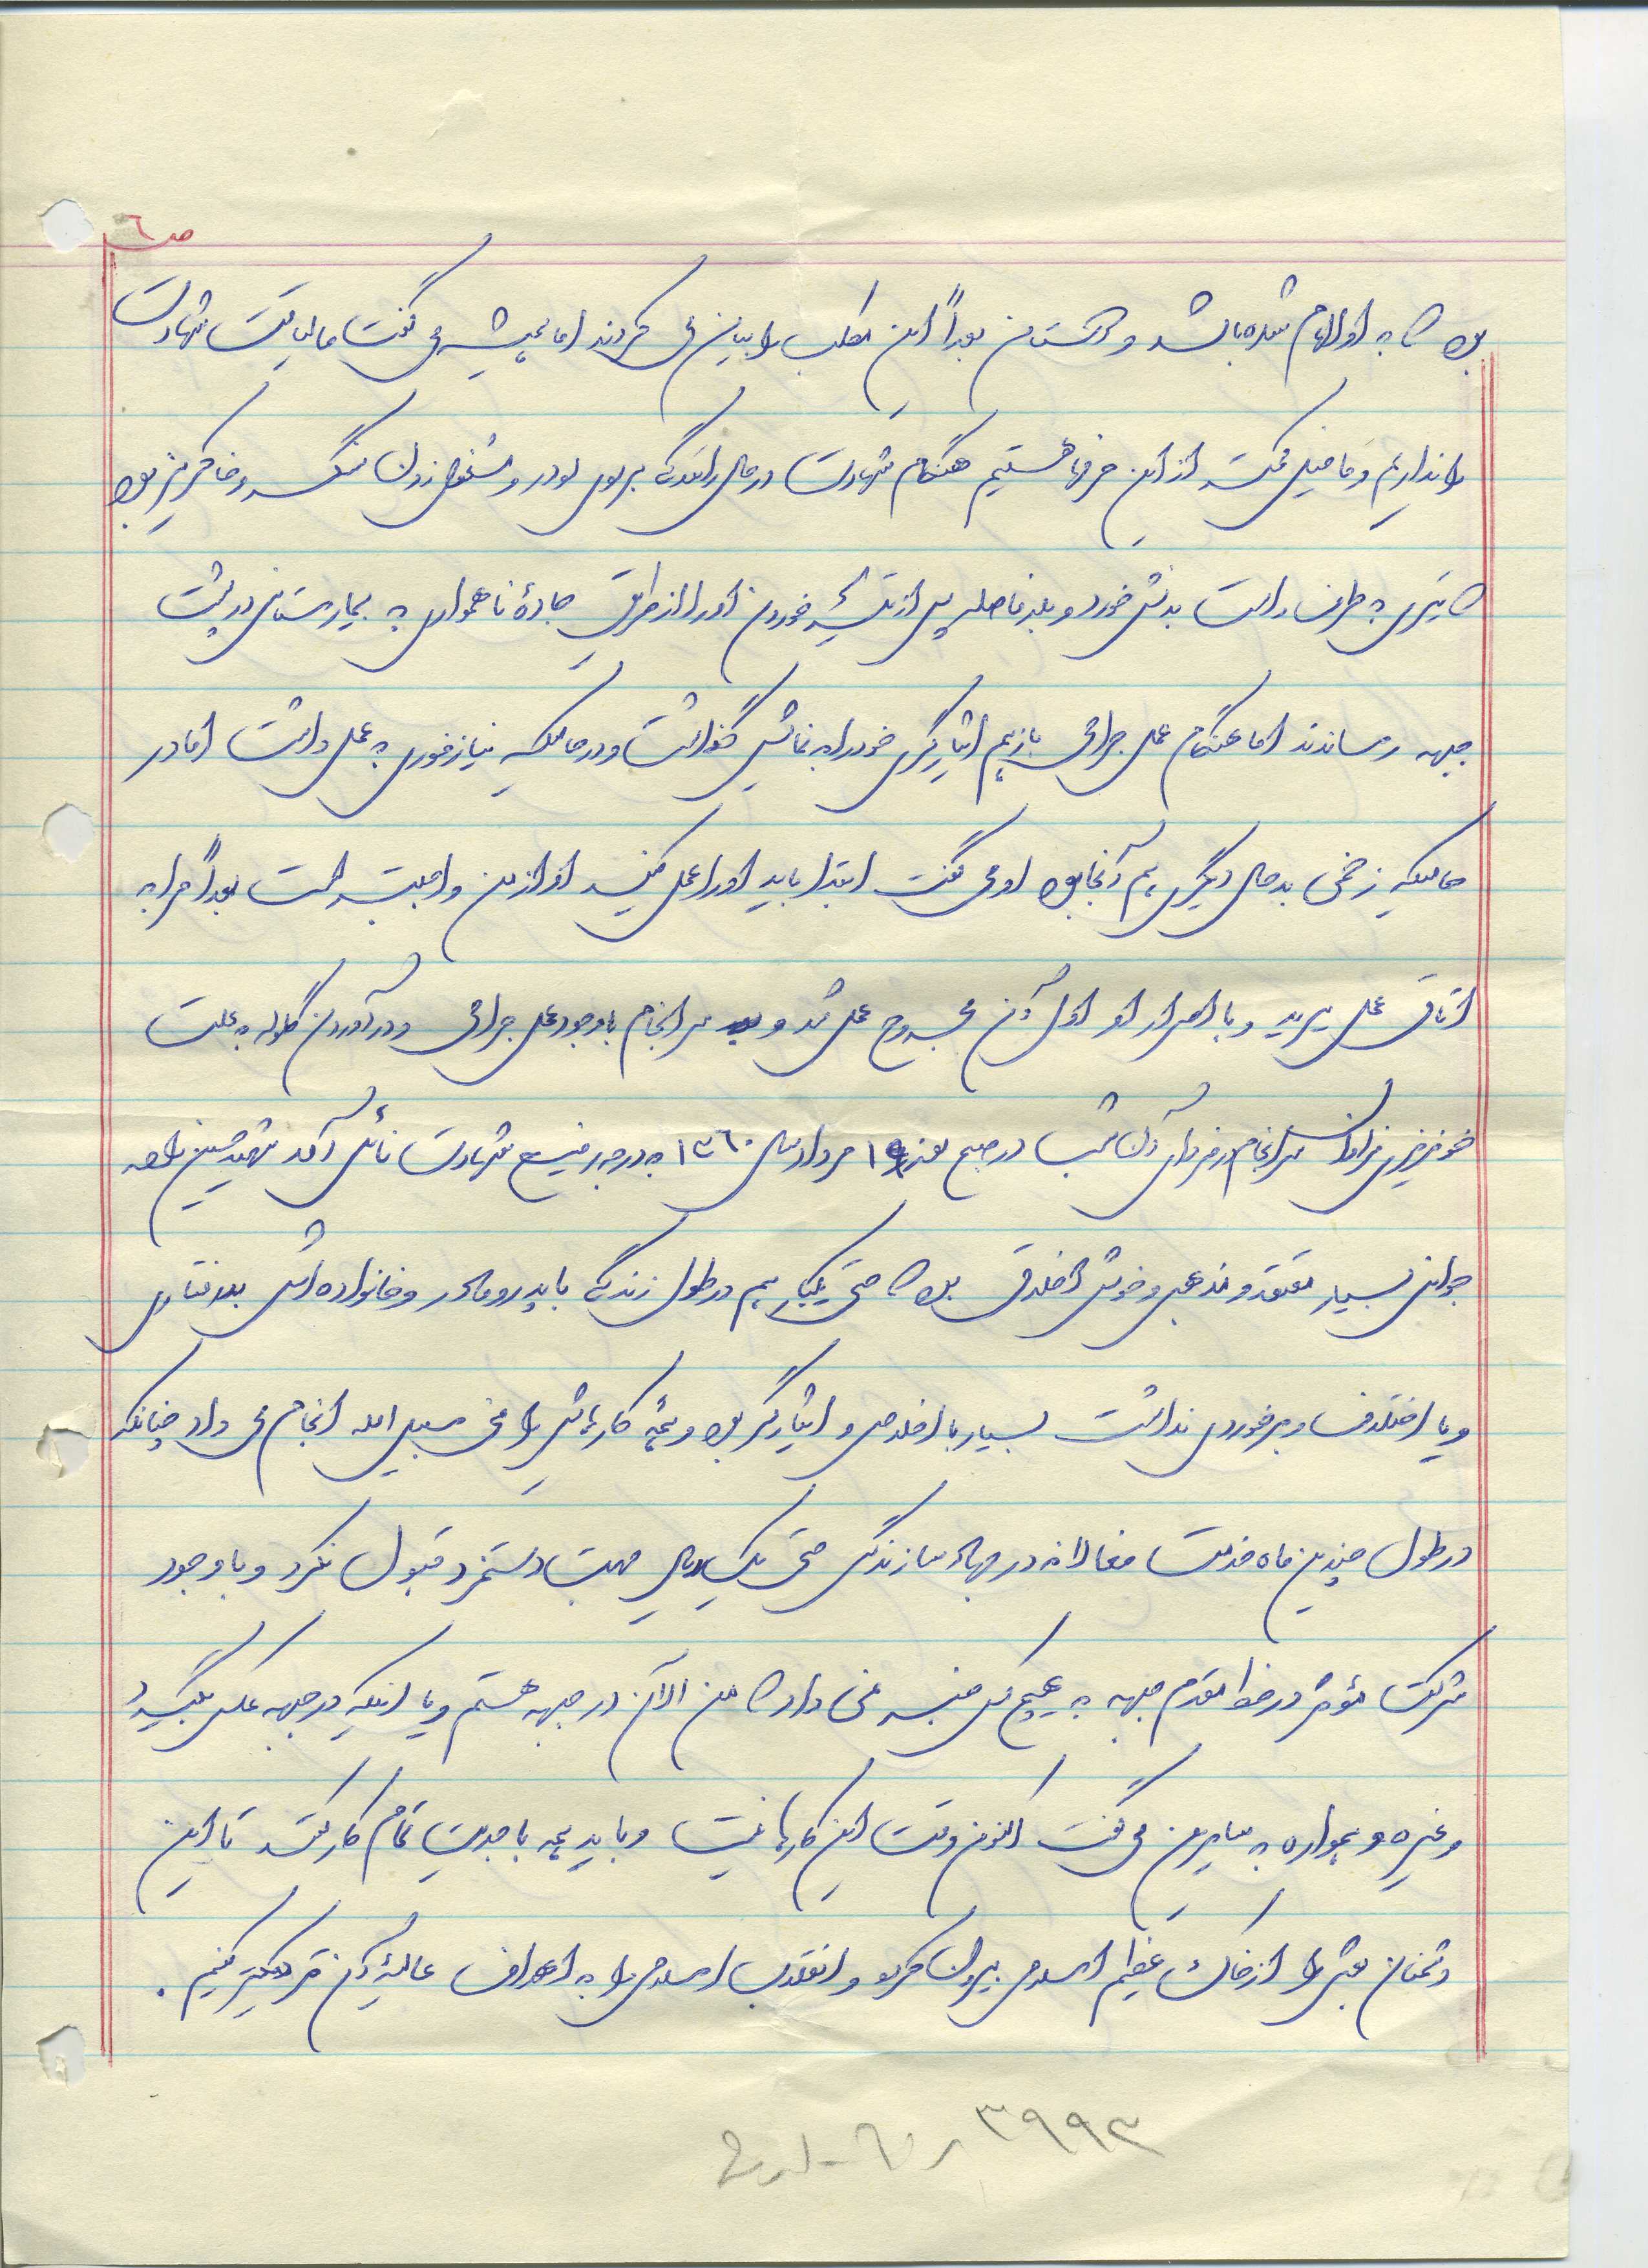 ص ٦
بود که به او الهام شده باشد و دوستان بعداً این مطلب را بیان می کردند اما همیشه می گفت ما لیاقت شهادت
را نداریم و ما خیلی کمتر از این حرفها هستیم هنگام شهادت در حال رانندگی بر روی لودر و مشغول زدن سنگر و خاکریز بود
که تیری به طرف راست بدنش خورد و بلافاصله پس از تیر خوردن او را از طریق جادۀ ناهمواری به بیمارستانی در پشت
جبهه رساندند اما هنگام عمل جراحی باز هم ایثارگری خود را به نمایش گذاشت و در حالیکه نیاز فوری به عمل داشت اما در
حالیکه زخمی بدحال دیگری هم آنجا بود او می گفت ابتدا باید او را عمل کنید او از من واجبتر است بعداً مرا به
اتاق عمل ببرید و با اصرار او اول آن مجروح عمل شد و سرانجام با وجود عمل جراحی و درآوردن گلوله به علت
خونریزی فراوان سرانجام در فردای آن شب در صبح روز ١٩ مرداد سال ١٣٦٠ به درجه رفیع شهادت نائل آمد شهید حسین
جوانی بسیار معتقد و مذهبی و خوش اخلاق بود که حتی یکبار هم در طول زندگی با پدر و مادر و خانواده اش بدرفتاری
و یا اختلاف و برخوردی نداشت بسیار با اخلاص و ایثارگر بود و همۀ کارهایش را فی سبیل الله انجام می داد چنانکه
در طول چندین ماه خدمت فعالانه در جهاد سازندگی حتی یک ریال جهت دستمزد قبول نکرد و با وجود
شرکت مؤثر در خط مقدم جبهه به هیچ کس خبر نمی داد که من الآن در جبهه هستم و یا اینکه در جبهه عکس بگیرد
و غیره و همواره به سایرین می گفت اکنون وقت این کارها نیست و باید همه با جدیت تمام کار کنند تا این
دشمنان بعثی را از خاک عظیم اسلامی بیرون کرده و انقلاب اسلامی را به اهداف عالیۀ آن نزدیکتر کنیم .
٣٩٩٣